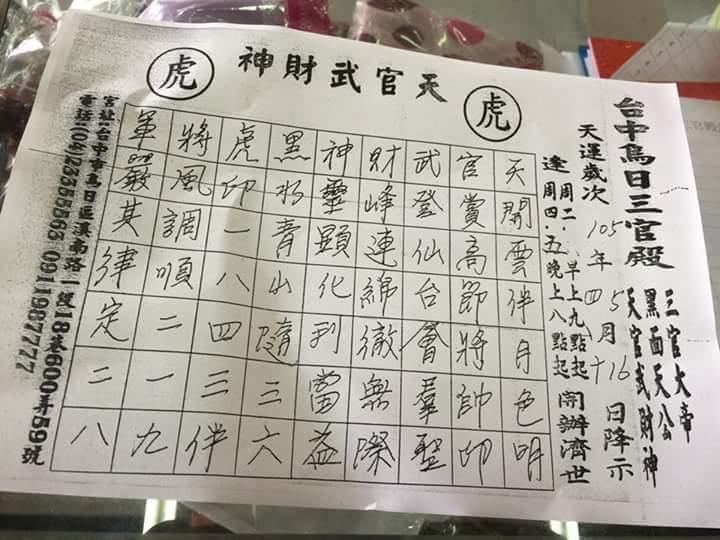 台中烏日三官殿
三官大帝
黑面天公
天官武財神
天運歲次 105年 5月 16 日降示
逢周二．早上九點起
周四．五晚上八點起
開辦濟世
虎
天官武財神
虎
天開雲伴月色明
官賞高節將帥印
武登仙台會羣聖
財峰連綿徹無際
神靈顯化利當益
黑水青山隨三六
虎印一八四三伴
將風調順二一九
軍嚴其律定二八
宮址:台中市烏日區溪南路一
600弄59號
電話:(04)23355563 0911987777